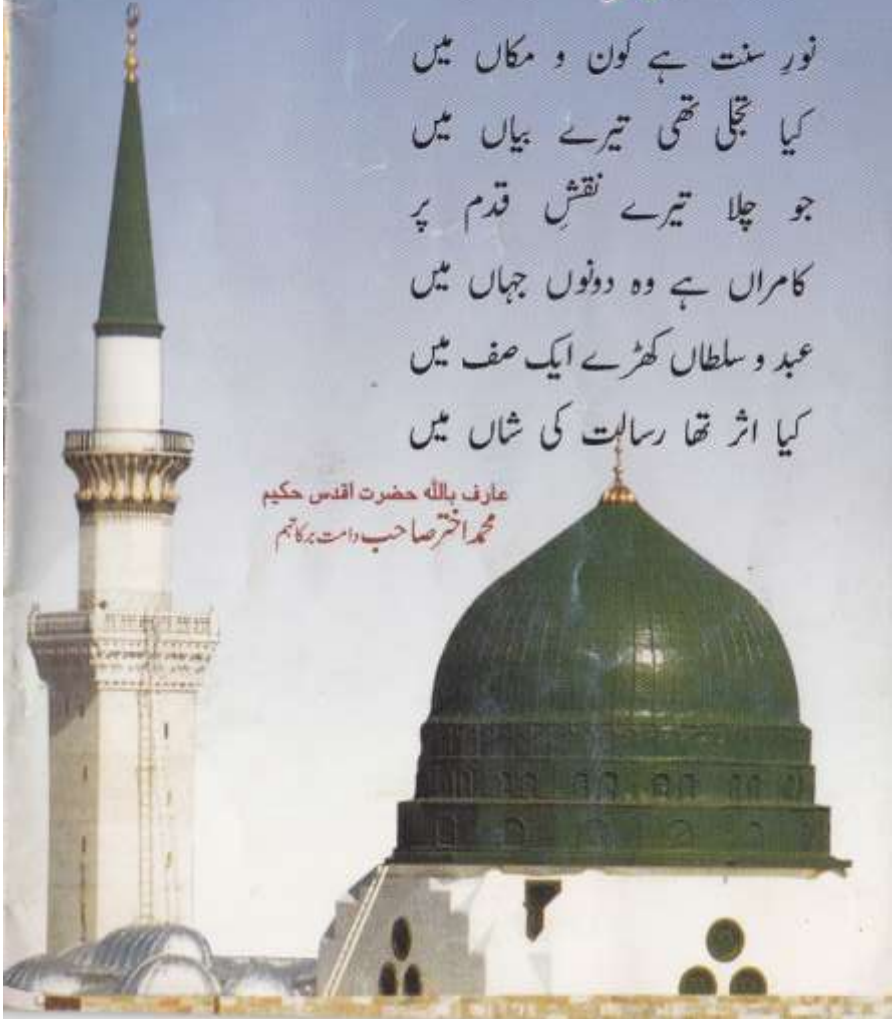 نورِ سنت ہے کون و مکاں میں
کیا تجلی تھی تیرے بیاں میں
جو چلا تیرے نقشِ قدم پر
کامراں ہے وہ دونوں جہاں میں
عبد و سلطاں کھڑے ایک صف میں
کیا اثر تھا رسالت کی شاں میں
عارف بالله حضرت اقدس حکیم
محمد اختر صاحب دامت برکاتہم